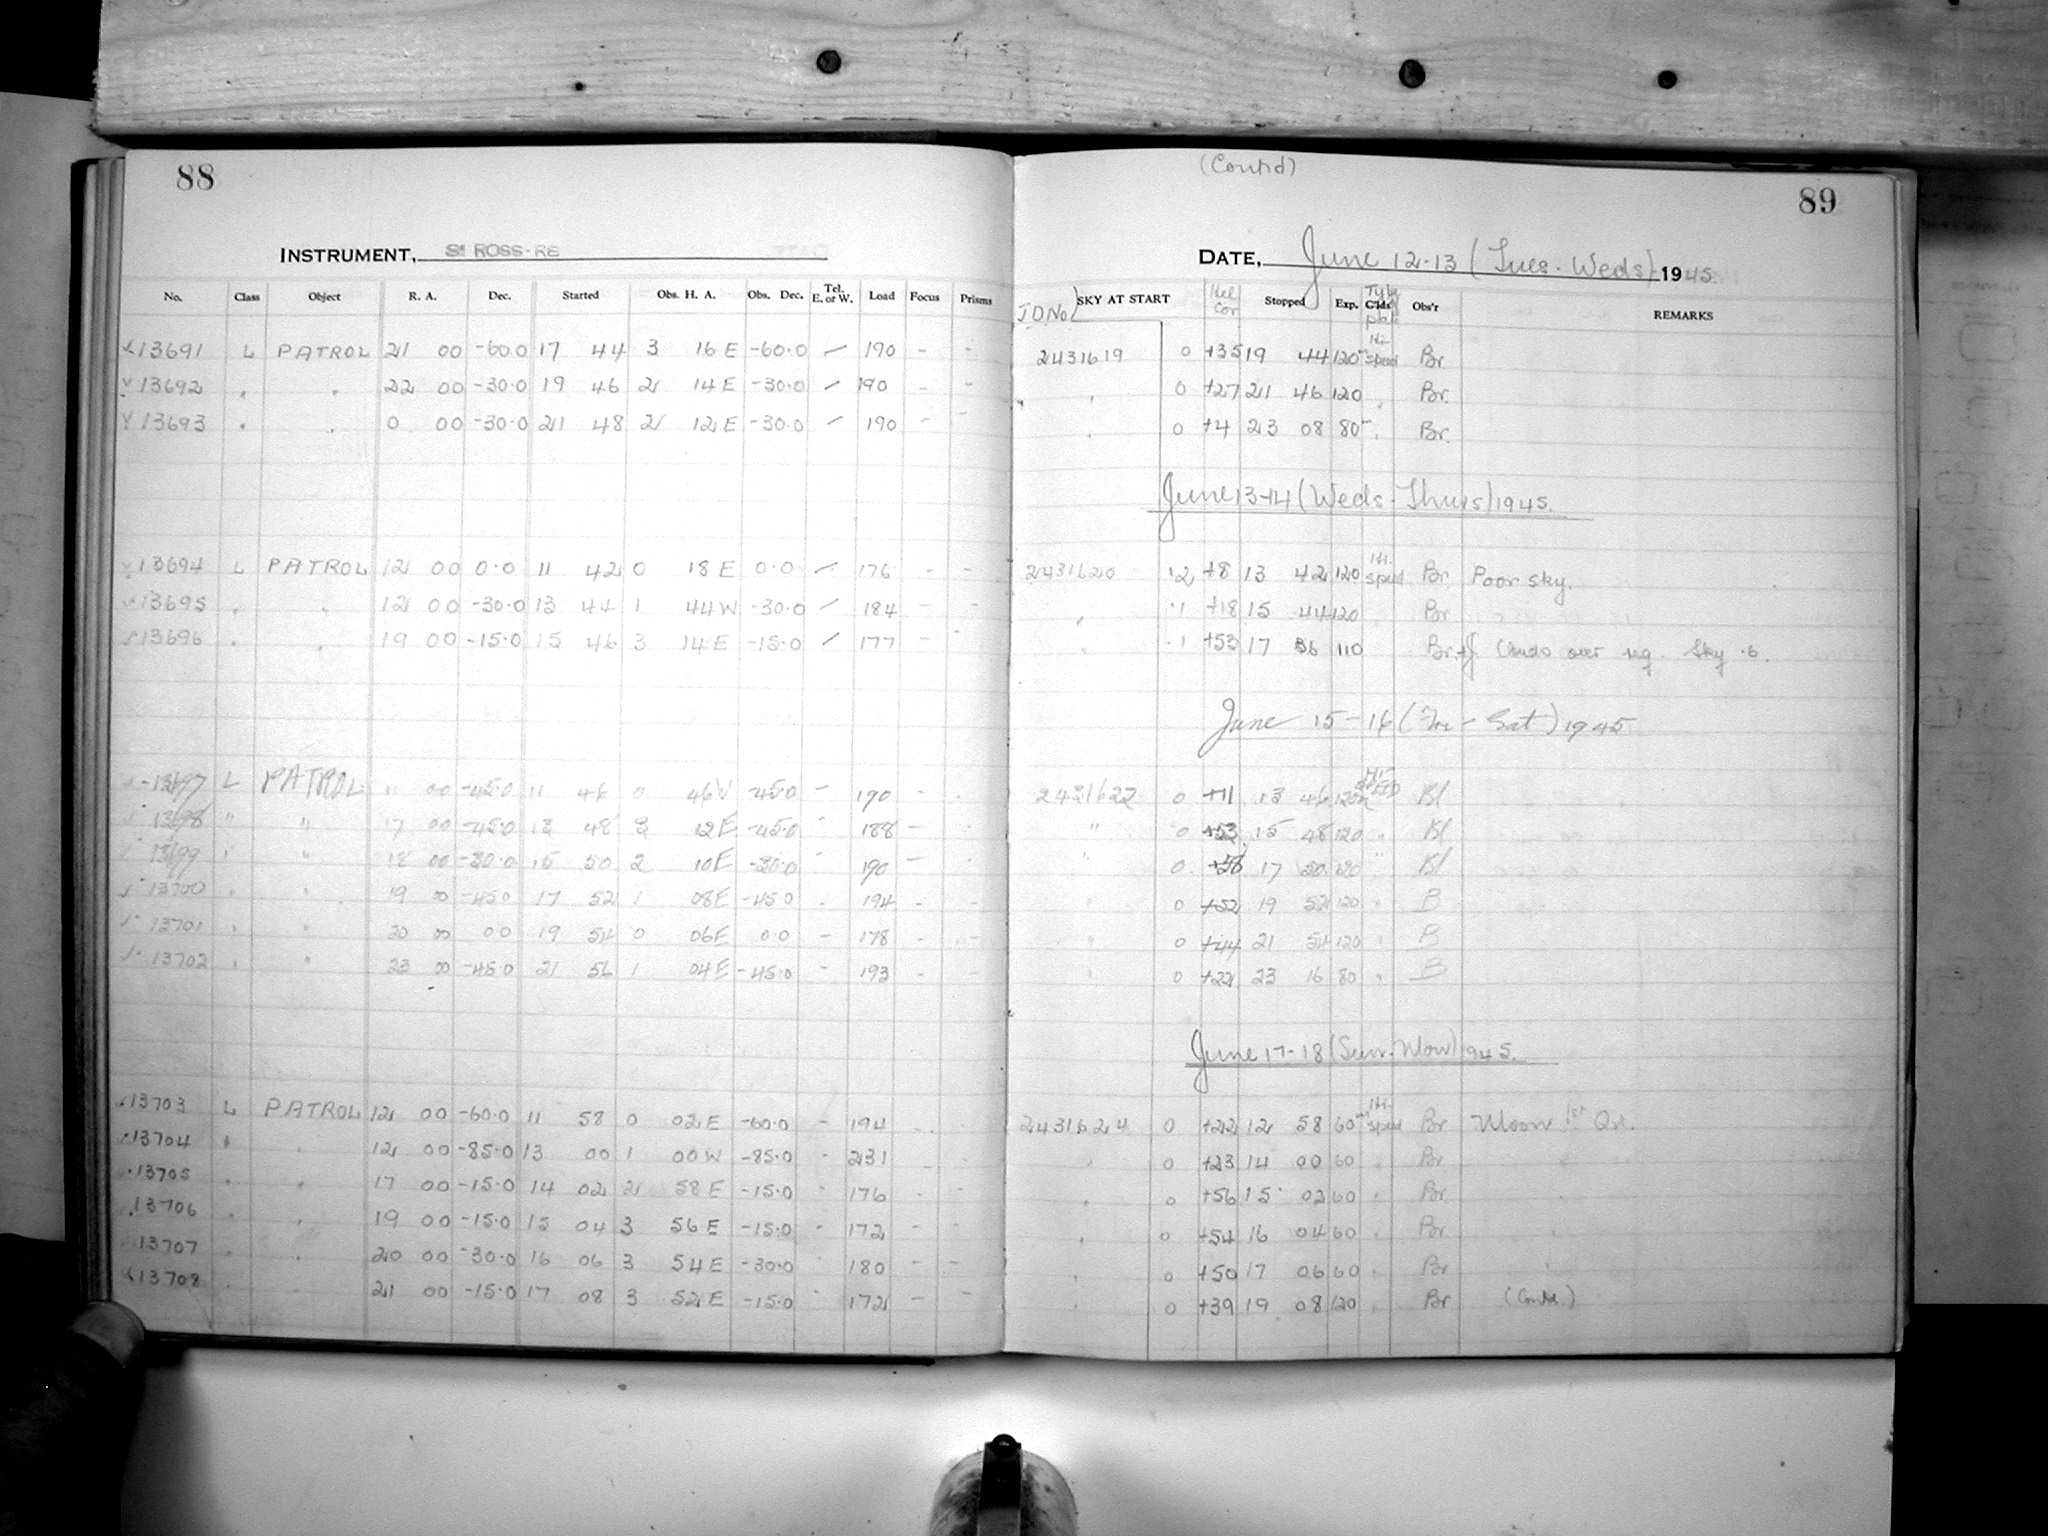 88
INSTRUMENT, ROSS-RE
No. Class Object R. A. Dec. Started Obs. H. A. Obs. Dec. Tel. E. or W. Load Focus Prisms
13691 L PATROL 21 00 -60.0 17 44 3 16 E -60.0 190 - -
13692 " " 22 00 -30.0 19 46 2 14 E -30.0 190 - -
13693 " " 0 00 -30.0 21 48 2 12 E -30.0 190 - -
13694 L PATROL 12 00 0.0 11 42 0 18 E 0.0 176 - -
13695 " " 12 00 -30.0 13 44 1 44 W -30.0 184 - -
13696 " " 19 00 -15.0 15 46 3 14 E -15.0 177 - -
13697 L PATROL 11 00 -45.0 11 46 0 46 W -45.0 - 190 -
13698 " " 17 00 -45.0 13 48 3 12 E -45.0 188 -
13699 " " 18 00 -30.0 15 50 2 10 E -30.0 190 -
13700 " " 19 00 -45.0 17 52 1 08 E -45.0 194 -
13701 " " 20 00 0.0 19 54 0 06 E 0.0 - 178 -
13702 " " 23 00 -45.0 21 56 1 04 E -45.0 193 -
13703 L PATROL 12 00 -60.0 11 58 0 02 E -60.0 - 194 -
13704 " " 12 00 -85.0 13 00 1 00 W -85.0 231 - -
13705 " " 17 00 -15.0 14 02 2 58 E -15.0 176 - -
13706 " " 19 00 -15.0 15 04 3 56 E -15.0 172 - -
13707 " " 20 00 -30.0 16 06 3 54 E -30.0 180 - -
13708 21 00 -15.0 17 08 3 52 E -15.0 172 - -
(Contd)
89
DATE, June 12-13 (Tues. Weds) 1945.
JD No SKY AT START Hel Cor Stopped Exp. Type plate Obs'r REMARKS
2431619 0 +35 19 44 120m Hi. speed Br.
" " 0 +27 21 46 120 " Br.
" 0 +4 23 08 80 " Br.
June 13-14 (Weds-Thurs) 1945.
2431620 .2 +8 13 42 120 Hi. speed Br. Poor sky.
" .1 +18 15 44 120 Br
" .1 +53 17 36 110 Br. Clouds over reg. Sky .6.
June 15-16 (Fri-Sat) 1945
2431622 0 +11 13 46 120m HI-SPEED Bl
" 0 +53 15 48 120 " Bl
" 0 +56 17 50 120 " Bl
" 0 +52 19 52 120 " B
" 0 +44 21 54 120 " B
" 0 +22 23 16 80 " B
June 17-18 (Sun. Mon) 1945.
2431624 0 +22 12 58 60m Hi. speed Br Moon 1st Qr.
" 0 +23 14 00 60 " Br
" 0 +56 15 02 60 " Br
" 0 +54 16 04 60 " Br
" 0 +50 17 06 60 " Br
" 0 +39 19 08 120 " Br (Contd.)